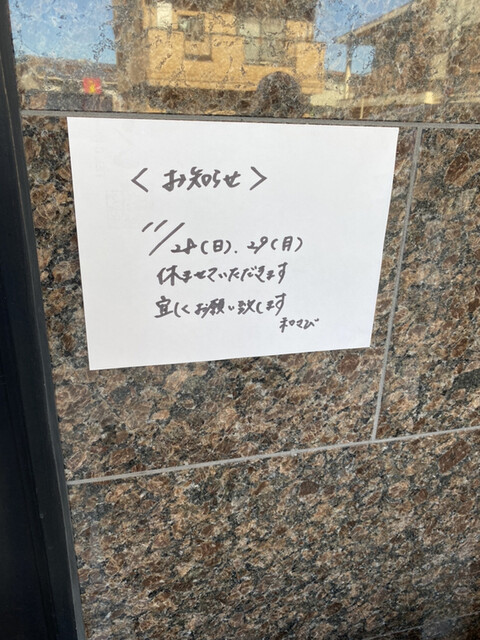 <お知らせ>
11/28(日)、29(月)
休ませていただきます
宜しくお願い致します
和さび